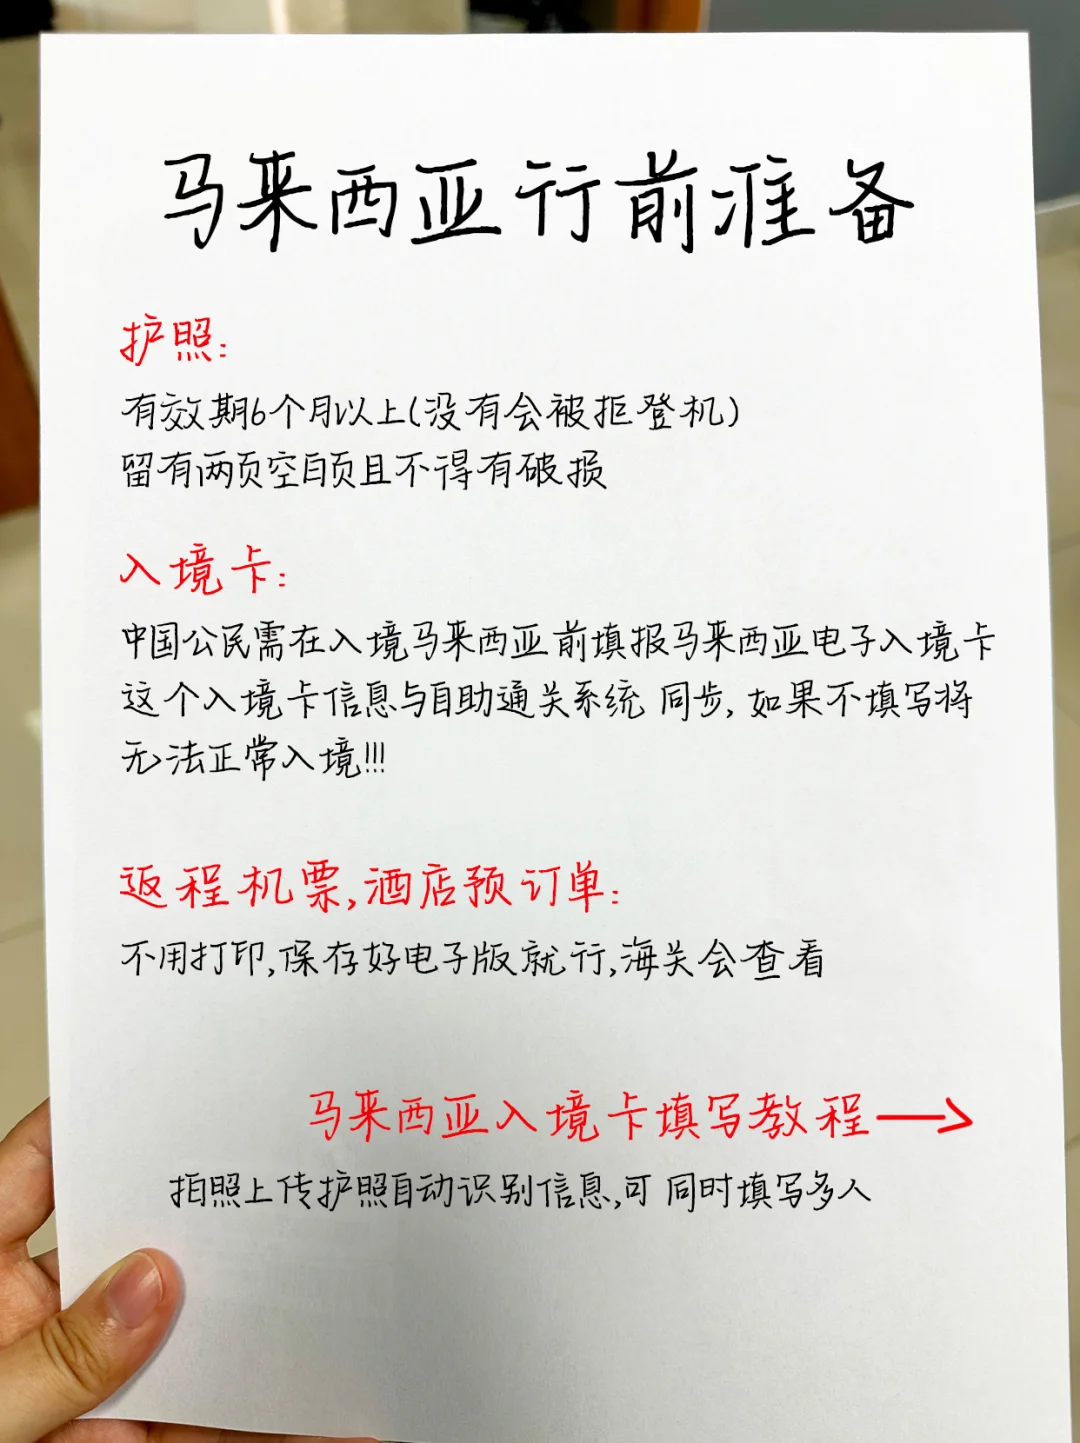 马来西亚行前准备
护照:
有效期6个月以上(没有会被拒登机)
留有两页空白页且不得有破损
入境卡:
中国公民需在入境马来西亚前填报马来西亚电子入境卡
这个入境卡信息与自助通关系统 同步, 如果不填写将
无法正常入境!!!
返程机票,酒店预订单:
不用打印,保存好电子版就行,海关会查看
马来西亚入境卡填写教程→
拍照上传护照自动识别信息,可 同时填写多人